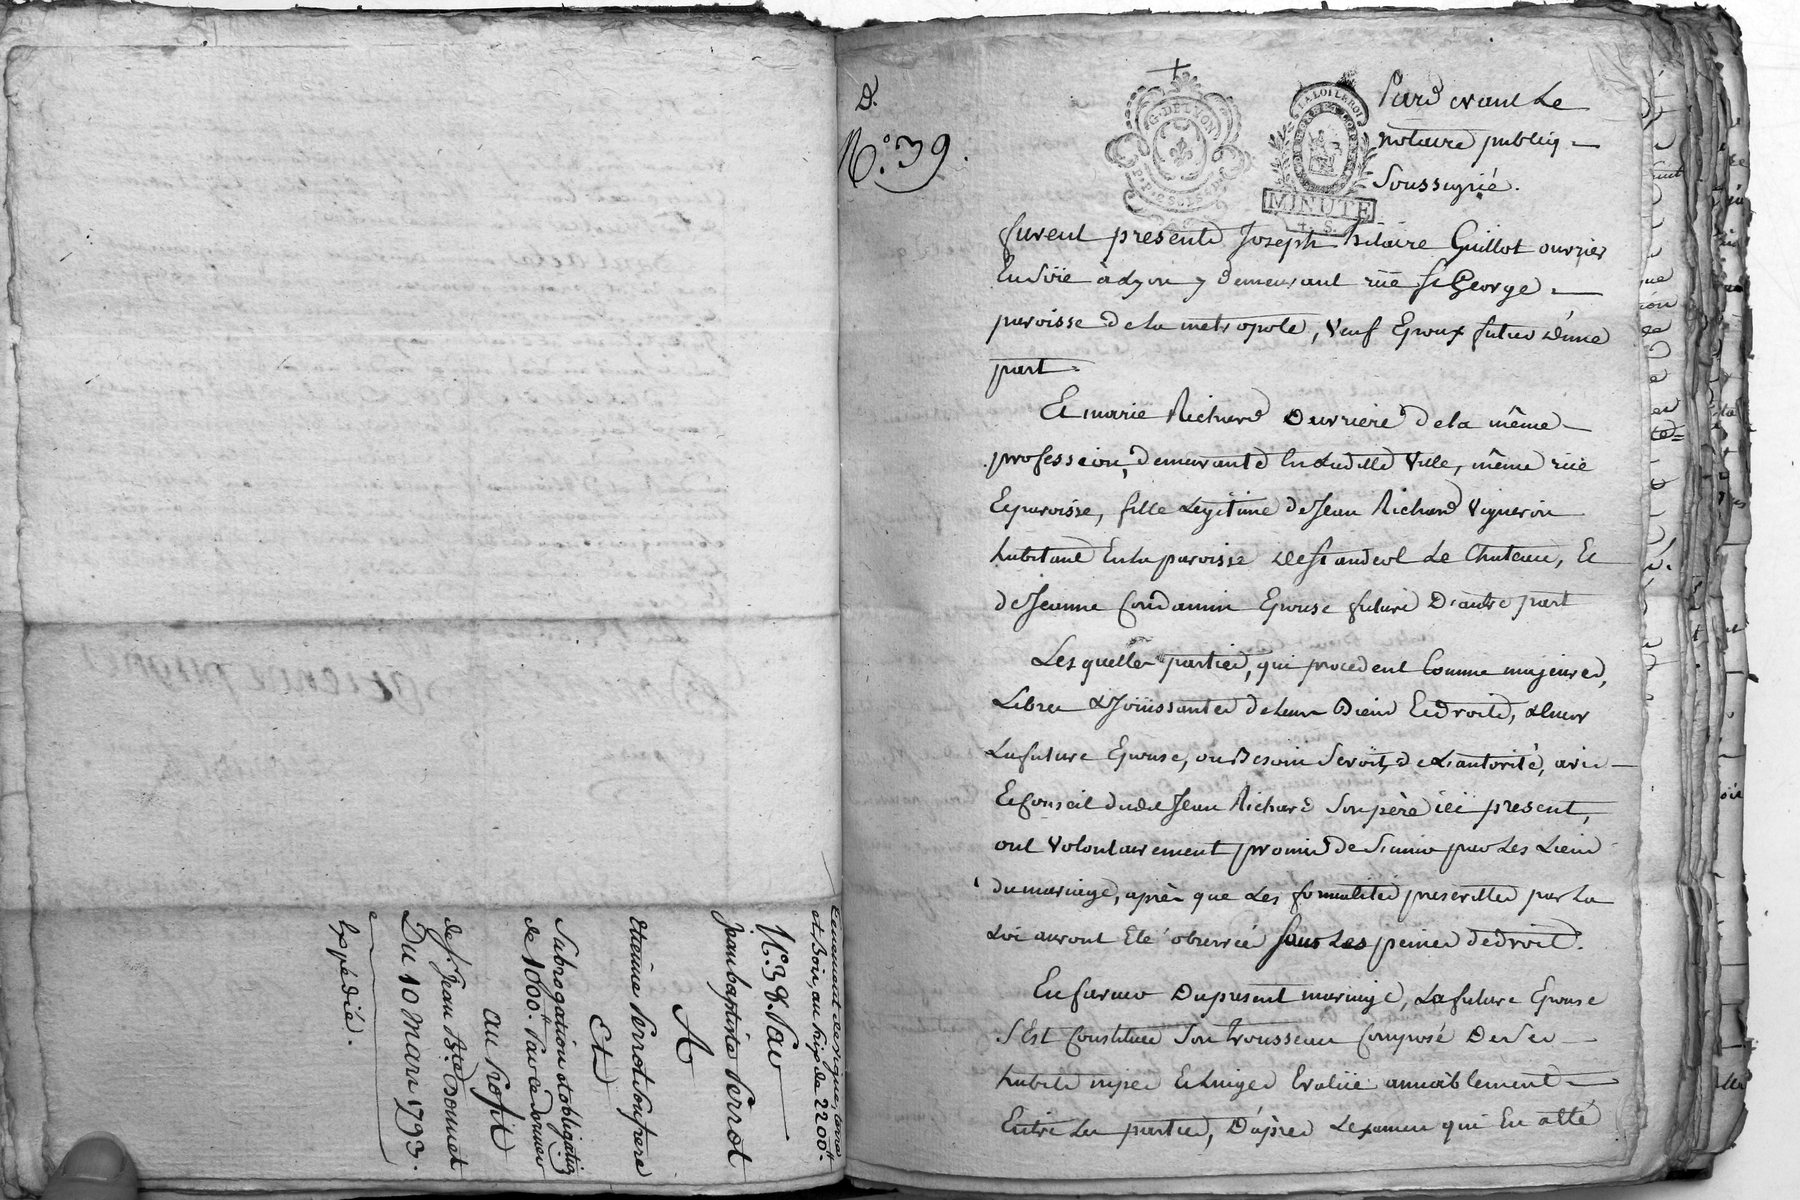 Ténement de vigne, terre
et bois, au prix de 2200tt.
N.° 38. Par
Jean baptiste Perrot
A
Etienne Perrot son frere
Et
Subrogation et obligation
de 1060tt. Par ce dernier
au Profit
de sr. Jean Bte. Donnet
Du 10 Mars 1793.
Expédié.
D.
N.° 39.
G. DE LYON
LA LOI LE ROI
MINUTE
4. S.
Pardevant Le
notaire public
Soussigné.
furent presents Joseph hilaire Guillot ouvrier
En Soïe à Lyon y demeurant rüe St George
paroisse de la métropole, Veuf Epoux futur d'une
part
Et marie Richard Ouvriere de la même
profession, demeurante En Laditte Ville, même rüe
Et paroisse, fille Legitime de Jean Richard Vigneron
habitant En la paroisse de St andeol Le Chateau, Et
de Jeanne Condamin Epouse future D'autre part
Les quelles parties, qui procedent Comme majeures,
Libres & Joüissantes de Leurs Biens Et droits, & Encor
La future Epouse, ou Besoin Seroit, de L'autorité, avis
Et Conseil dudit Jean Richard Son père ici present,
ont Volontairement promis de S'unir par Les Liens
du mariage, après que Les formalités prescrittes par La
Loi auront Eté observée Sous Les peines de droit.
En faveur Du present mariage, La future Epouse
S'Est Constituée Son trousseau Composé De Ses
habits nipes Et Linges Evalüé amiablement
Entre Les parties, D'après L'examen qui En a Eté